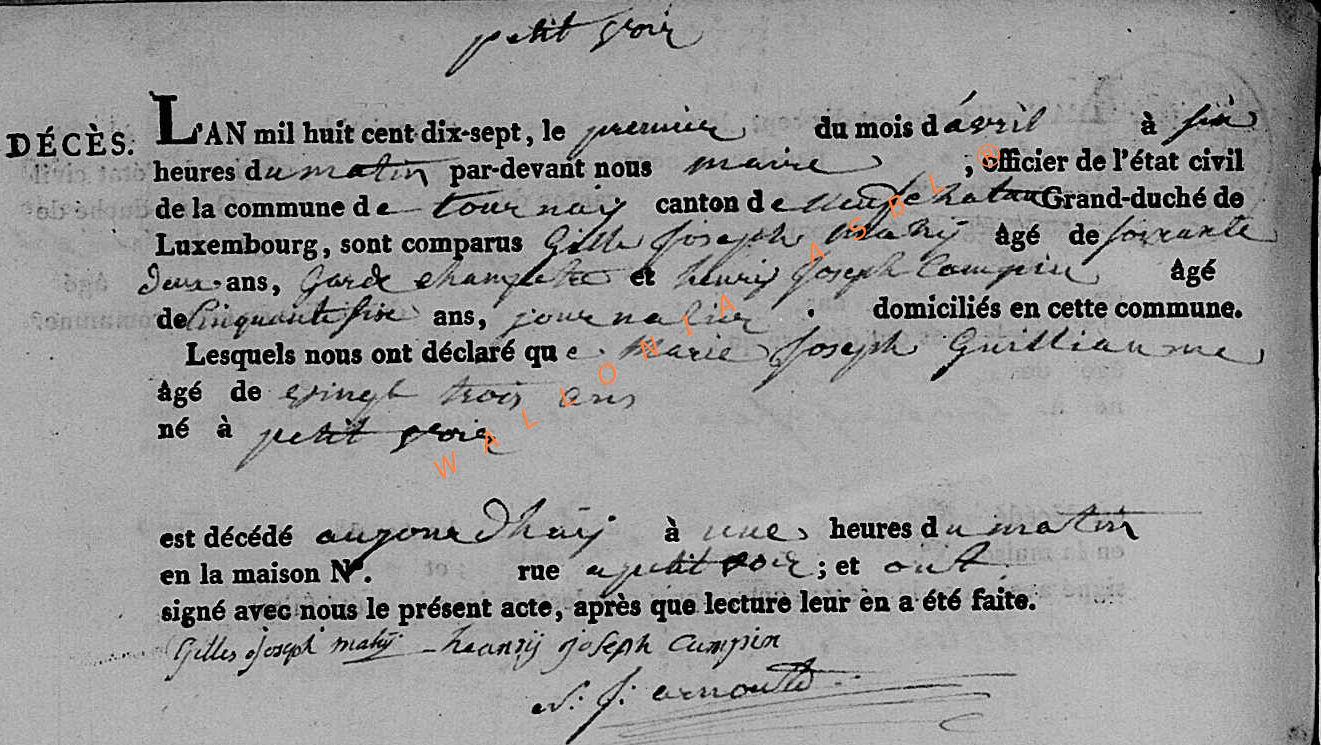 petit voir
DÉCÈS. L'AN mil huit cent dix-sept, le premier du mois d'avril à six
heures du matin par-devant nous maire , officier de l'état civil
de la commune de tournay canton de neufchatau Grand-duché de
Luxembourg, sont comparus Gille Joseph mahy âgé de soixante
deux ans, Garde champetre et henry Joseph Campin âgé
de Cinquante six ans, journalier . domiciliés en cette commune.
Lesquels nous ont déclaré que marie Joseph Guilliaume
âgé de vingt trois ans
né à petit voir
est décédé aujourdhuy à une heures du matin
en la maison N°. rue a petit voir ; et ont
signé avec nous le présent acte, après que lecture leur en a été faite.
Gilles Joseph mahy heanry joseph Campin
J: arnould
WALLONIA ASBL ®